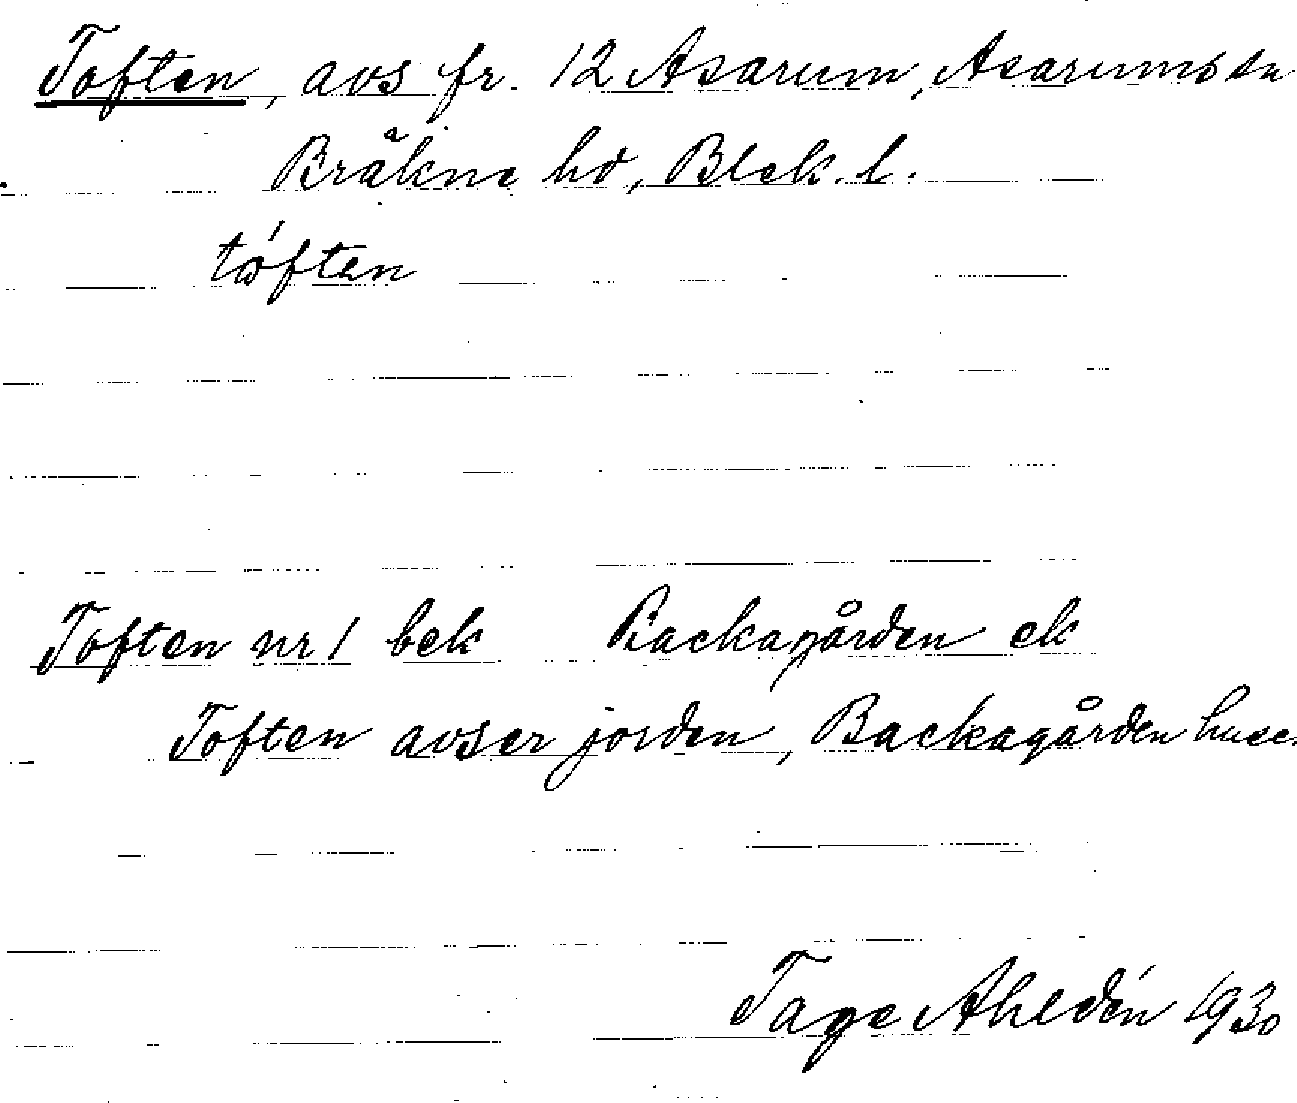 Toften, avs fr. 12 Asarum, Asarums sn
Bräkne hd, Blek. l.
tǿften
Toften nr 1 bek Backagården ek
Toften avser jorden, Backagården huse.
Tage Ahldén 1930